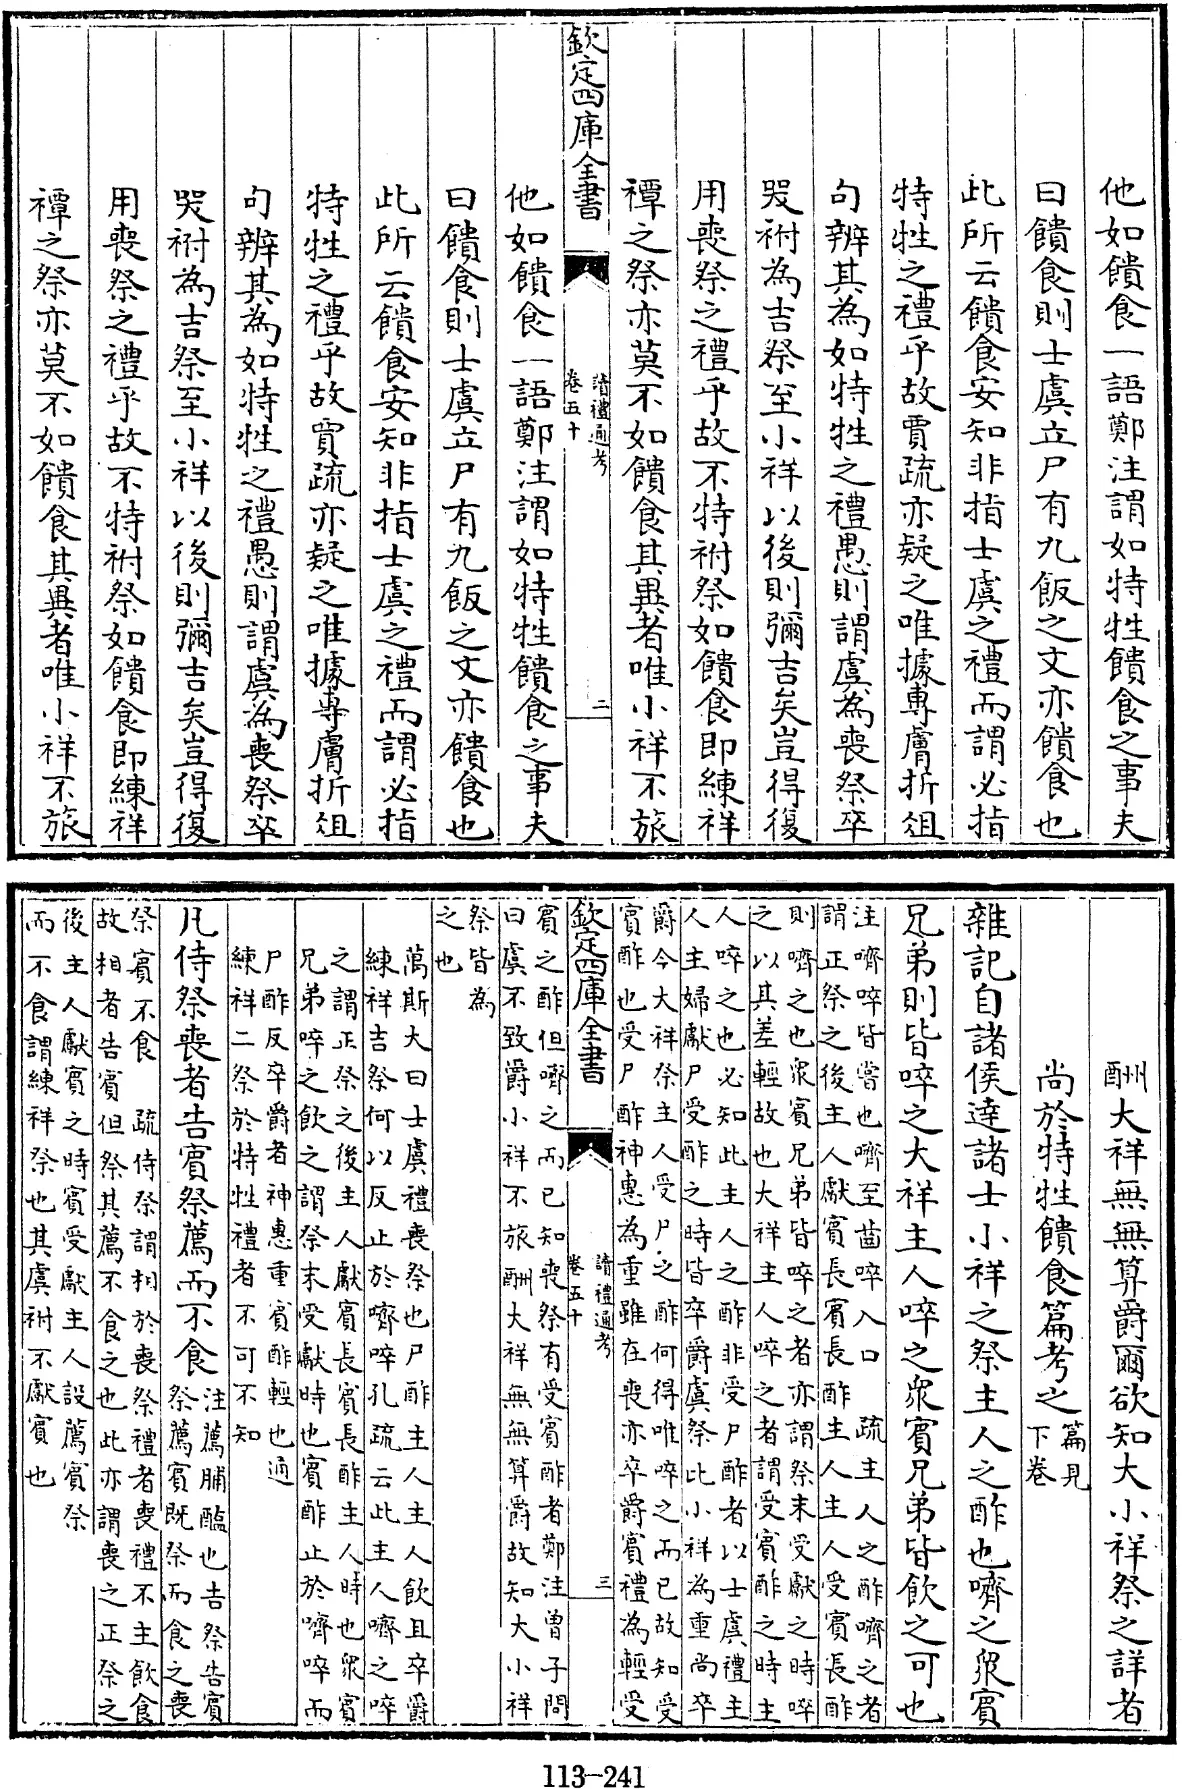 他如饋食一語鄭注謂如特牲饋食之事夫
曰饋食則士虞立尸有九飯之文亦饋食也
此所云饋食安知非指士虞之禮而謂必指
特牲之禮乎故賈疏亦疑之唯據專膚折俎
句辨其為如特牲之禮愚則謂虞為喪祭卒
哭祔為吉祭至小祥以後則彌吉矣豈得復
用喪祭之禮乎故不特祔祭如饋食即練祥
禫之祭亦莫不如饋食其異者唯小祥不旅
欽定四庫全書
讀禮通考
卷五十
二
他如饋食一語鄭注謂如特牲饋食之事夫
曰饋食則士虞立尸有九飯之文亦饋食也
此所云饋食安知非指士虞之禮而謂必指
特牲之禮乎故賈疏亦疑之唯據專膚折俎
句辨其為如特牲之禮愚則謂虞為喪祭卒
哭祔為吉祭至小祥以後則彌吉矣豈得復
用喪祭之禮乎故不特祔祭如饋食即練祥
禫之祭亦莫不如饋食其異者唯小祥不旅
酬大祥無無算爵爾欲知大小祥祭之詳者
尚於特牲饋食篇考之篇見下卷
雜記自諸侯達諸士小祥之祭主人之酢也嚌之衆賓
兄弟則皆啐之大祥主人啐之衆賓兄弟皆飲之可也
注嚌啐皆嘗也嚌至齒啐入口　疏主人之酢嚌之者
謂正祭之後主人獻賓長賓長酢主人主人受賓長酢
則嚌之也衆賓兄弟皆啐之者亦謂祭末受獻之時啐
之以其差輕故也大祥主人啐之者謂受賓酢之時主
人啐之也必知此主人之酢非受尸酢者以士虞禮主
人主婦獻尸受酢之時皆卒爵虞祭比小祥為重尚卒
爵今大祥祭主人受尸之酢何得唯啐之而已故知受
賓酢也受尸酢神惠為重雖在喪亦卒爵賓禮為輕受
欽定四庫全書
讀禮通考
卷五十
三
賓之酢但嚌之而已知喪祭有受賓酢者鄭注曾子問
曰虞不致爵小祥不旅酬大祥無無算爵故知大小祥
祭皆為
之也
萬斯大曰士虞禮喪祭也尸酢主人主人飲且卒爵
練祥吉祭何以反止於嚌啐孔疏云此主人嚌之啐
之謂正祭之後主人獻賓長賓長酢主人時也衆賓
兄弟啐之飲之謂祭末受獻時也賓酢止於嚌啐而
尸酢反卒爵者神惠重賓酢輕也適
練祥二祭於特牲禮者不可不知
凡侍祭喪者告賓祭薦而不食注薦脯醢也吉祭告賓
祭薦賓既祭而食之喪
祭賓不食　疏侍祭謂相於喪祭禮者喪禮不主飲食
故相者告賓但祭其薦不食之也此亦謂喪之正祭之
後主人獻賓之時賓受獻主人設薦賓祭
而不食謂練祥祭也其虞祔不獻賓也
113-241